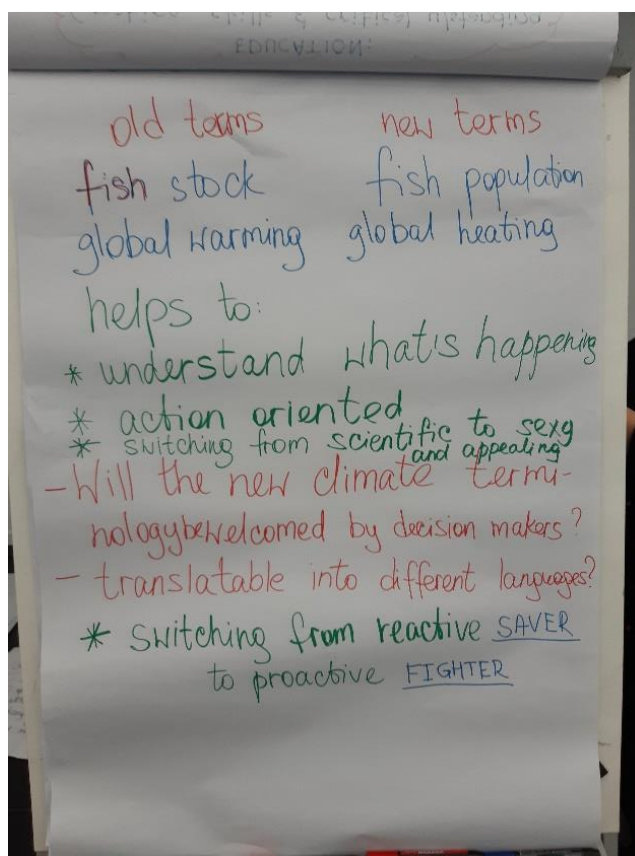 EDUCATION:
old terms new terms
fish stock fish population
global warming global heating
helps to:
* understand what's happening
* action oriented
* switching from scientific to sexy
and appealing
- Will the new climate termi-
nologybewelcomed by decision makers?
- translatable into different languages?
* switching from reactive SAVER
to proactive FIGHTER